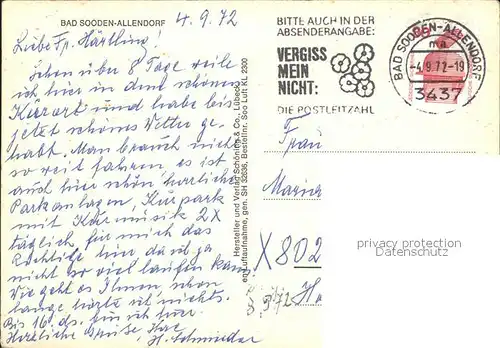 BAD SOODEN-ALLENDORF
4.9.72
Liebe Fr. Härtling!
Schon über 8 Tage weile
ich hier in dem schönen
Kurort und habe bis
jetzt schönes Wetter ge-
habt. Man braucht nicht
so weit fahren, es ist
auch hier schön, herrliche
Parkanlagen, Kurpark
mit Kurmusik 2X
täglich, für mich das
Richtige hier, da ich ja
nicht so viel laufen kann.
Wie geht es Ihnen, schon
lange hörte ich nichts.
Bis 16. ds. bin ich hier.
Herzliche Grüße Ihre
H. Schmieder
Hersteller und Verlag Schöning & Co., Lübeck
Luftaufnahme, gen. SH 32636, Bestellnr. Soo Luft KL 2300
BITTE AUCH IN DER
ABSENDERANGABE:
VERGISS
MEIN
NICHT:
DIE POSTLEITZAHL
BAD SOODEN-ALLENDORF
ma
-4.9.72-19
3437
Frau
X 802
9.72
privacy protection
Datenschutz